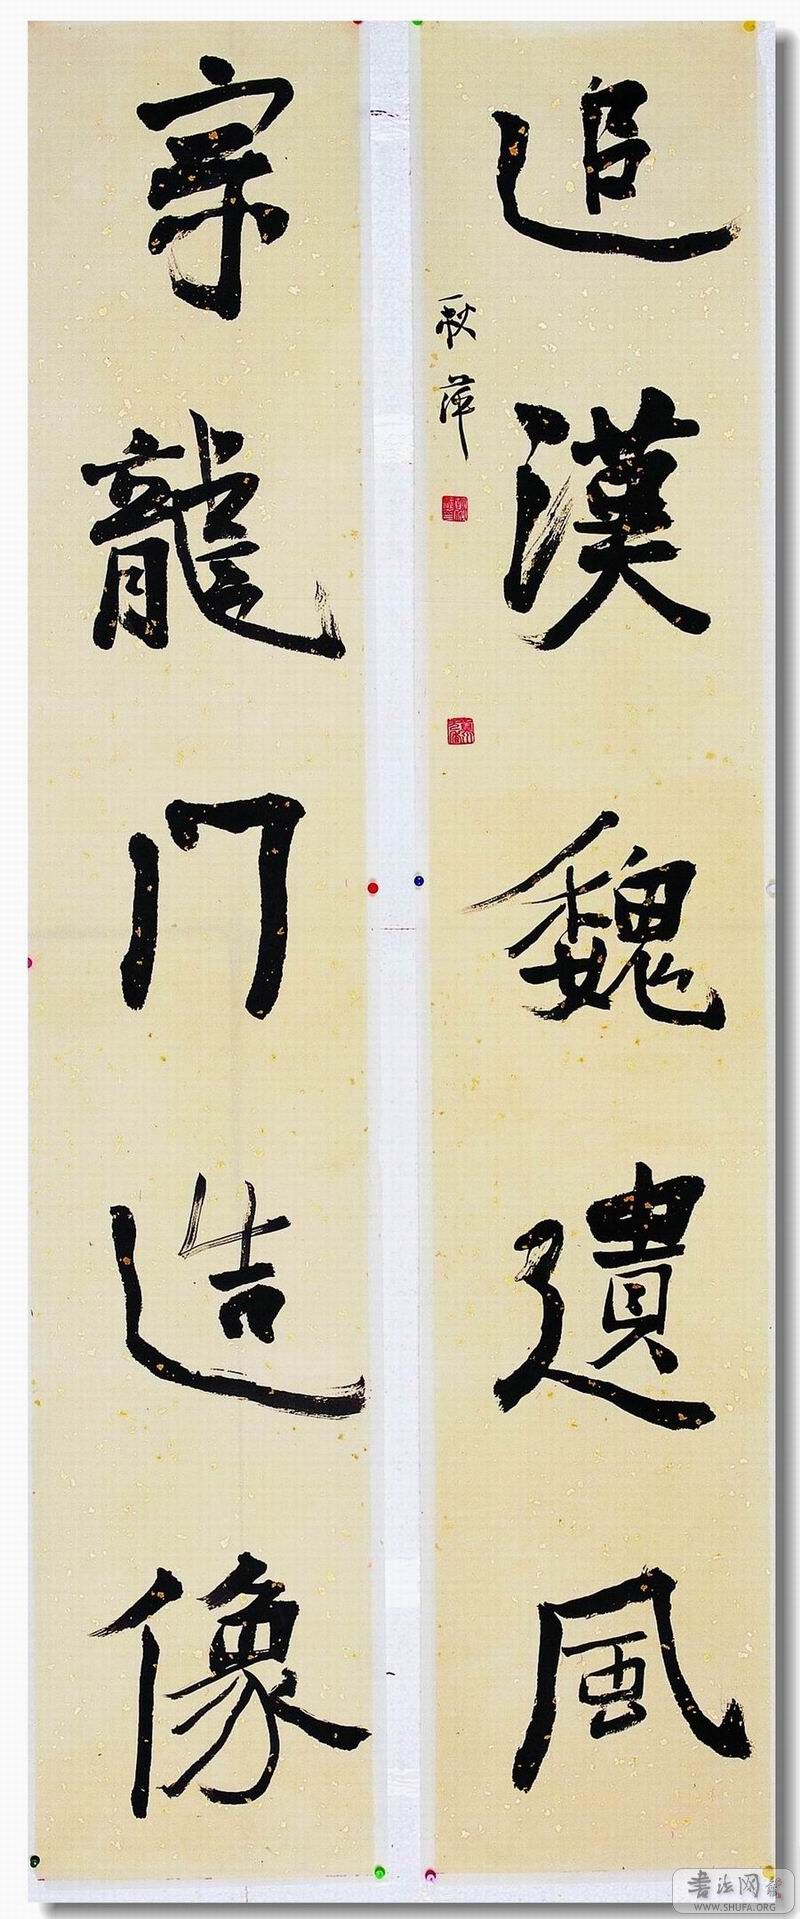 追漢魏遺風
秋萍
宗龍门造像
书法网
WWW.SHUFA.ORG